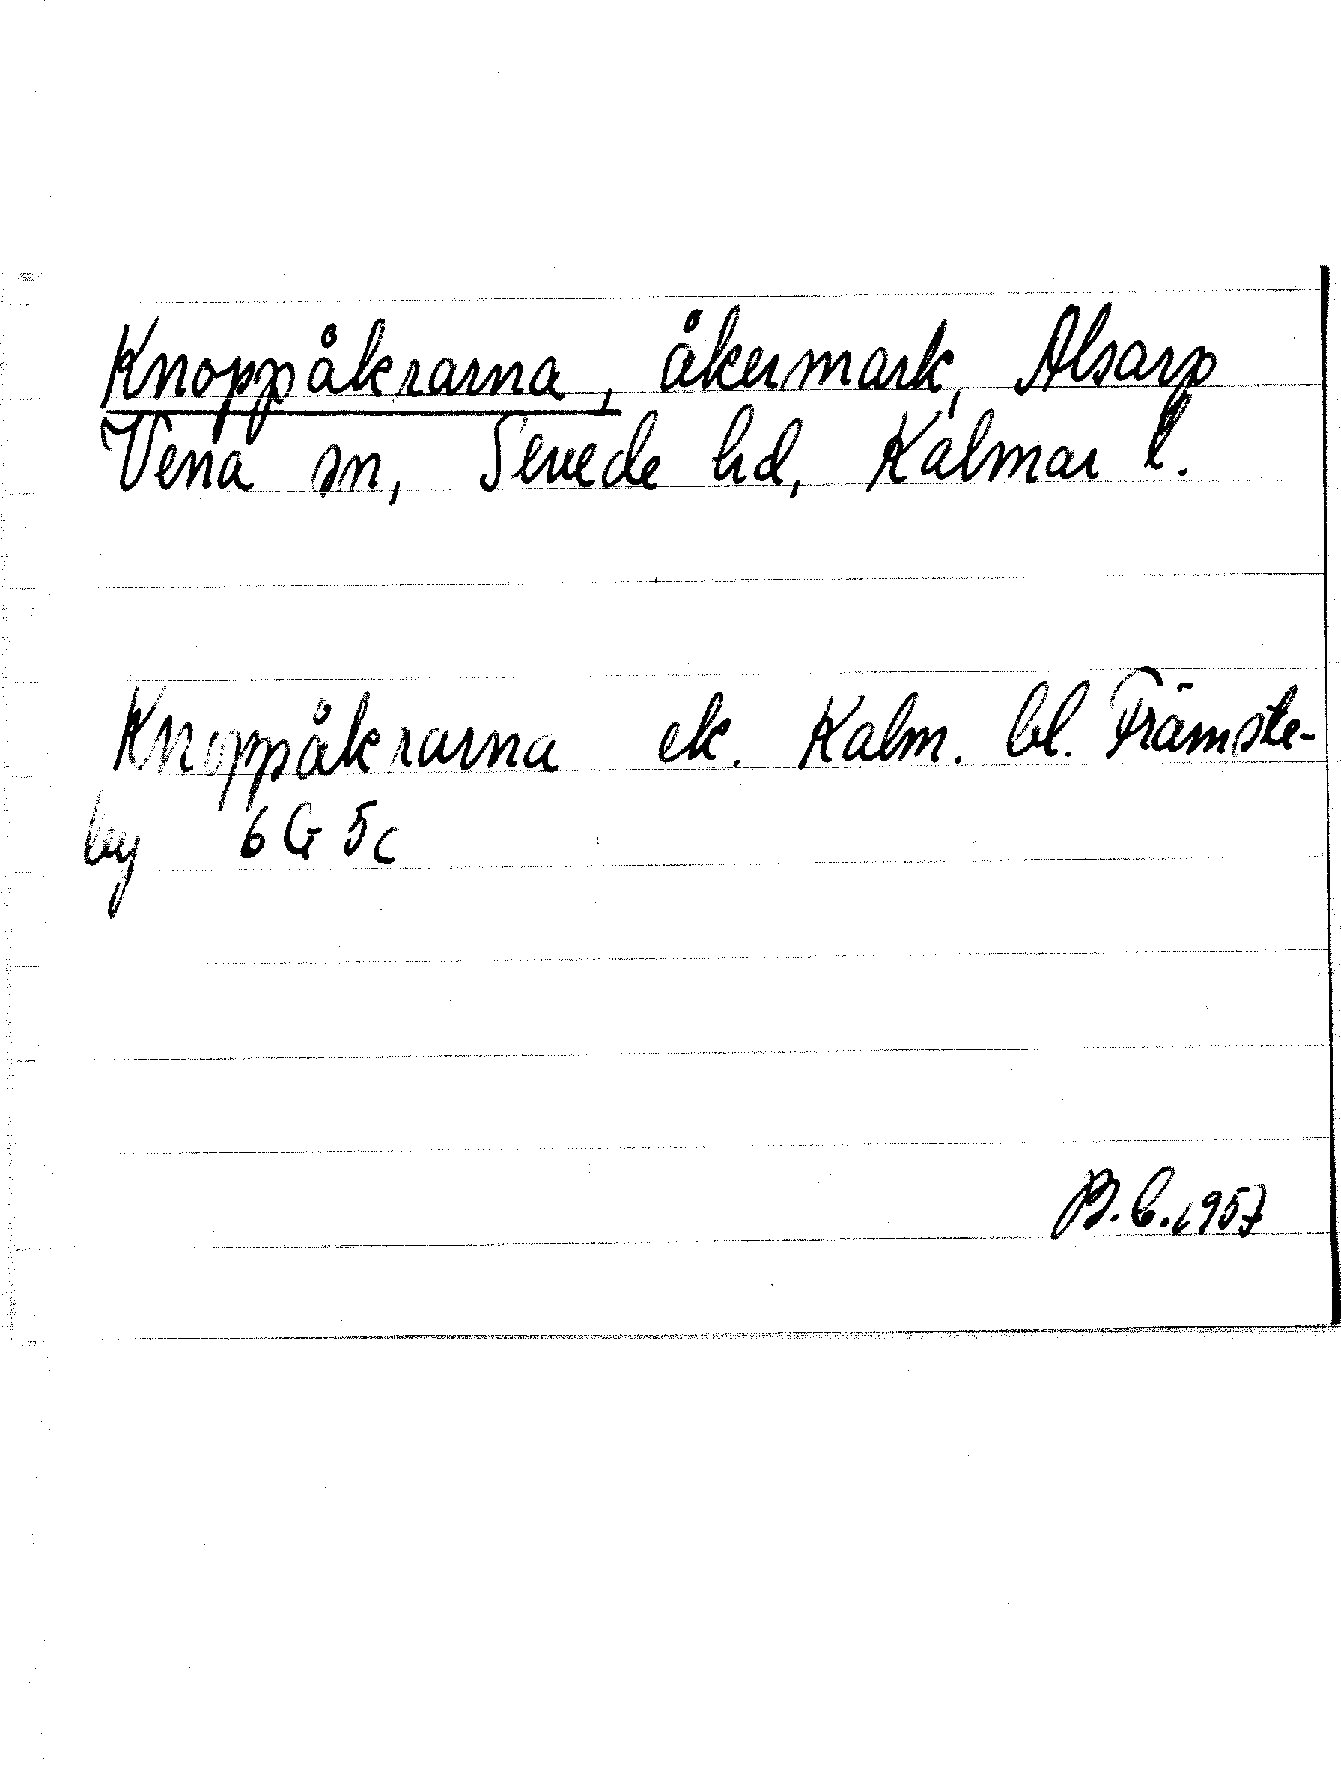 Knoppåkrarna, åkermark, Alsarp
Vena sn, Sevede hd, Kalmar l.
Knoppåkrarna ek. Kalm. bl. Främste-
by 6 G 5c
B.C. 1957